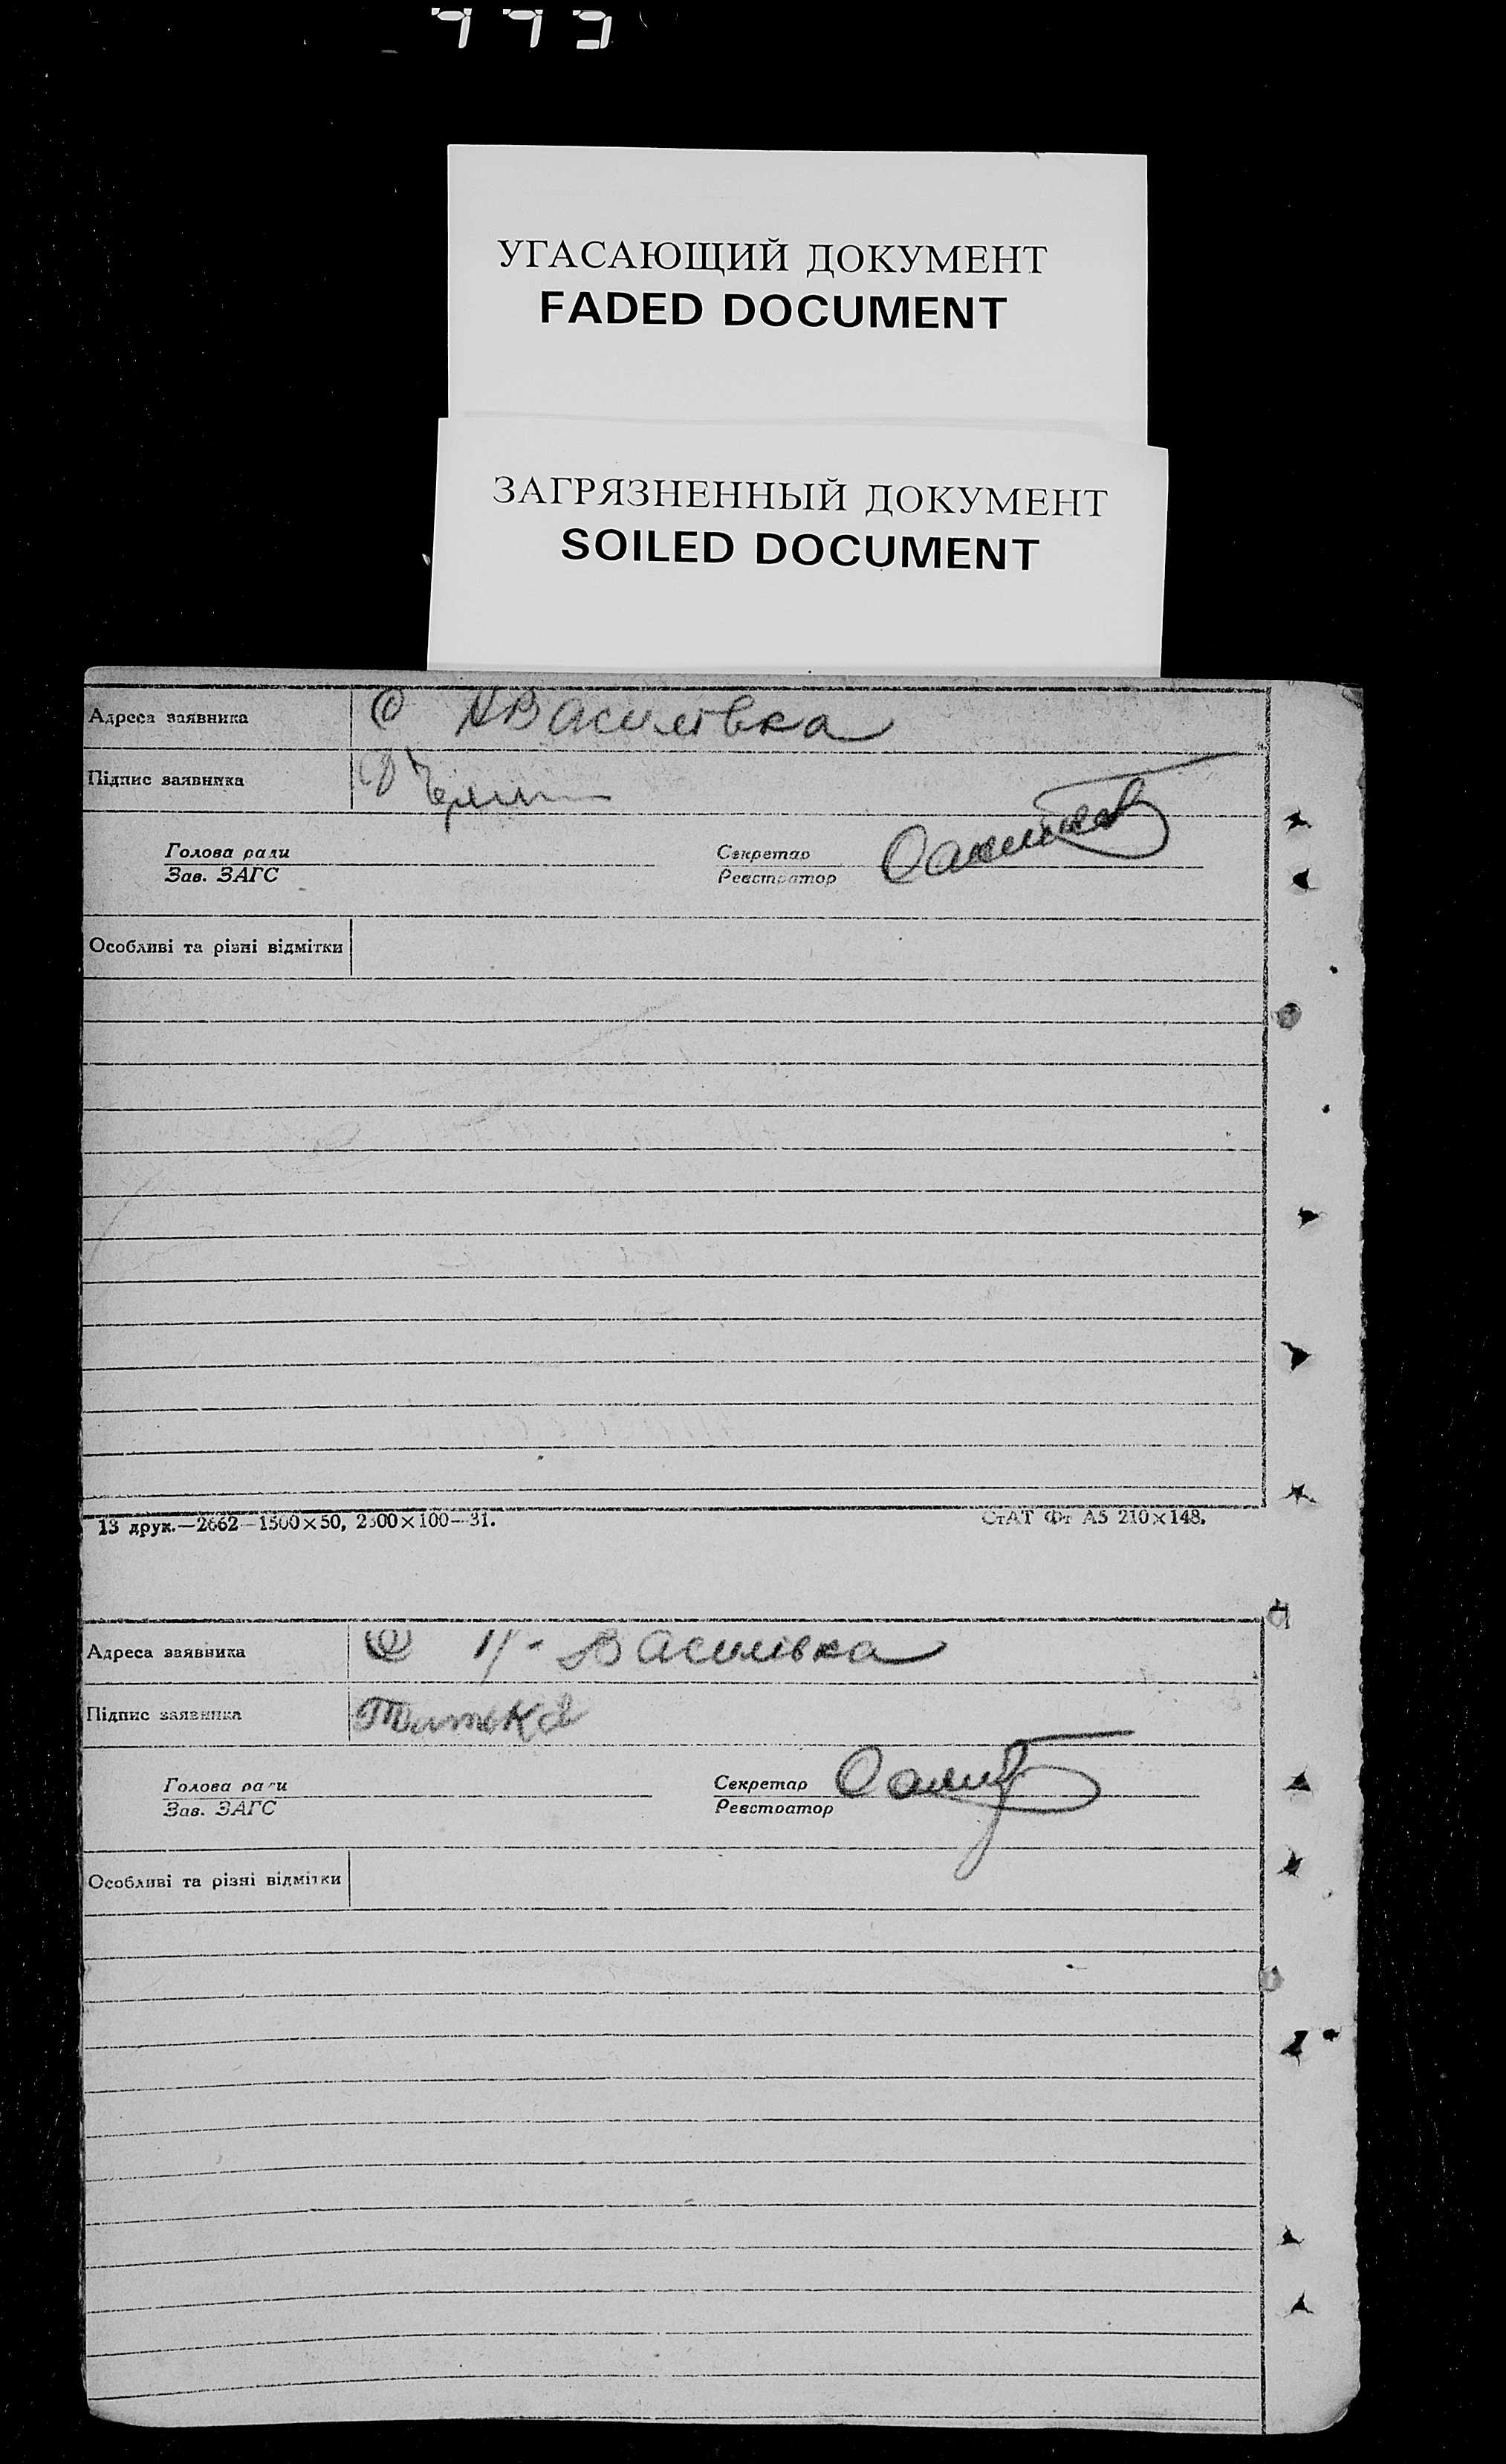 УГАСАЮЩИЙ ДОКУМЕНТ
FADED DOCUMENT
ЗАГРЯЗНЕННЫЙ ДОКУМЕНТ
SOILED DOCUMENT
Адреса заявника Василівка
Підпис заявника
Голова ради Секретар
Зав. ЗАГС Реєстратор
Особливі та різні відмітки
13 друк.—2662—1500×50, 2300×100—31. СтАТ Фт А5 210×148.
Адреса заявника Василівка
Підпис заявника
Голова ради Секретар
Зав. ЗАГС Реєстратор
Особливі та різні відмітки